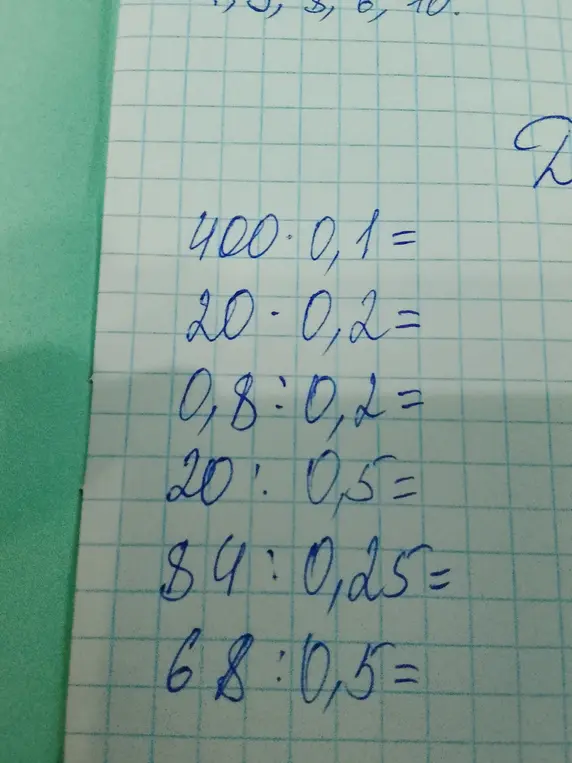 , 8, 6, 10.
400 · 0,1 =
20 · 0,2 =
0,8 : 0,2 =
20 : 0,5 =
84 : 0,25 =
68 : 0,5 =